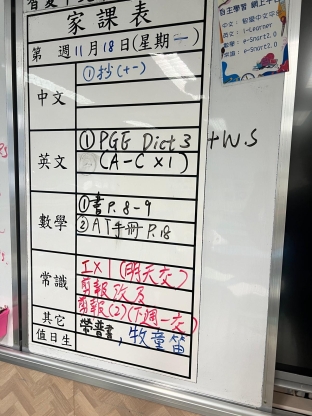 家課表
第 週11月18日(星期一)
中文
①抄(十一)
英文
①PGE Dict 3 + W.S
(A-C x1)
數學
①書P.8-9
②AT手冊P.18
常識
工x1(明天交)
剪報
剪報(2)(下週一交)
其它
值日生
帶普書,牧童笛
自主學習 網上平台
中文:
英文: i-Learner
數學: e-Smart2.0
常識: e-Smart2.0